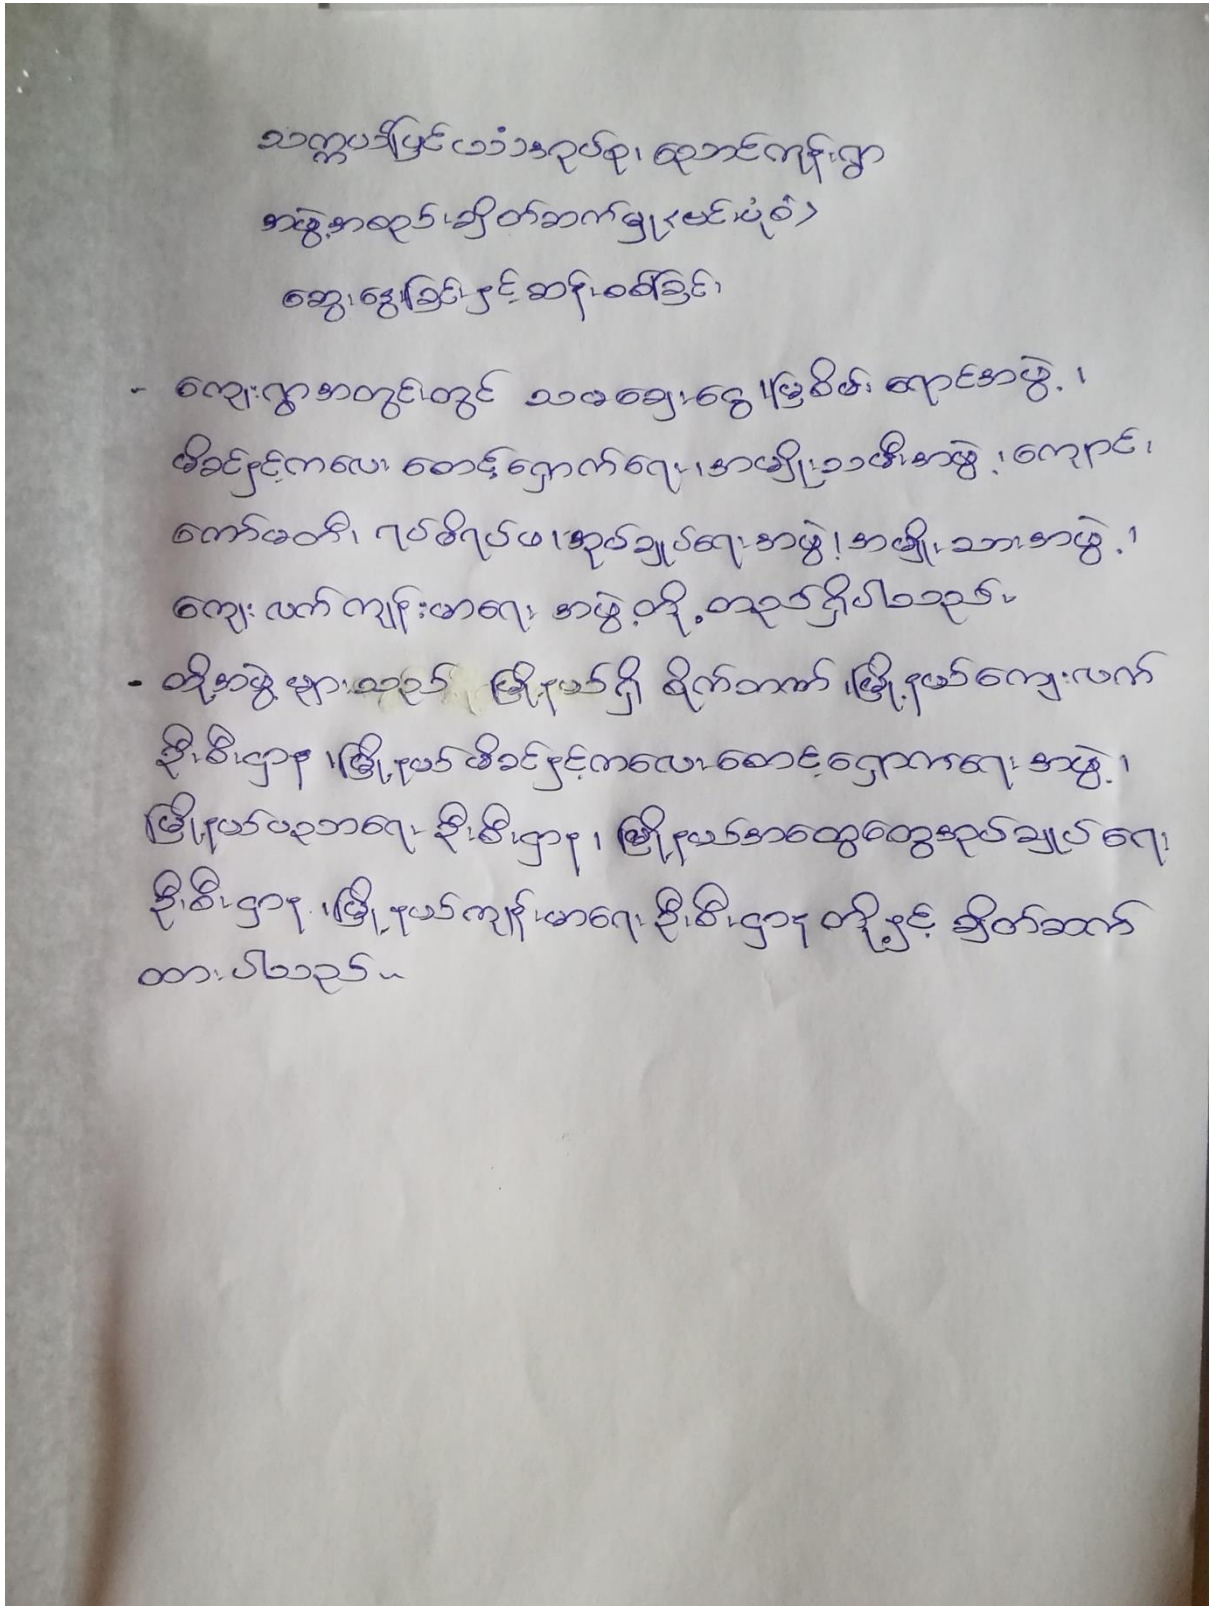 အုပ်စု၊ ရွာ
အဖွဲ့အစည်းချိတ်ဆက်မှု(ဗင်းပုံစံ)
ဆွေးနွေးခြင်းနှင့်ဆန်းစစ်ခြင်း
- ကျေးရွာအတွင်းတွင် သမချေးငွေ၊ မြစိမ်းရောင်အဖွဲ့၊
မိခင်နှင့်ကလေး စောင့်ရှောက်ရေး၊ အမျိုးသမီးအဖွဲ့၊ ကျောင်း
ကော်မတီ၊ ရပ်မိရပ်ဖ၊ အုပ်ချုပ်ရေးအဖွဲ့၊ အမျိုးသားအဖွဲ့၊
ကျေးလက်ကျန်းမာရေး အဖွဲ့တို့ တည်ရှိပါသည်။
- တို့အဖွဲ့များသည် မြို့နယ်ရှိ စိုက်ဘဏ်၊ မြို့နယ်ကျေးလက်
ဦးစီးဌာန၊ မြို့နယ်မိခင်နှင့်ကလေးစောင့်ရှောက်ရေး အဖွဲ့၊
မြို့နယ်ပညာရေး ဦးစီးဌာန၊ မြို့နယ်အထွေထွေအုပ်ချုပ်ရေး
ဦးစီးဌာန၊ မြို့နယ်ကျန်းမာရေး ဦးစီးဌာနတို့နှင့် ချိတ်ဆက်
ထားပါသည်။